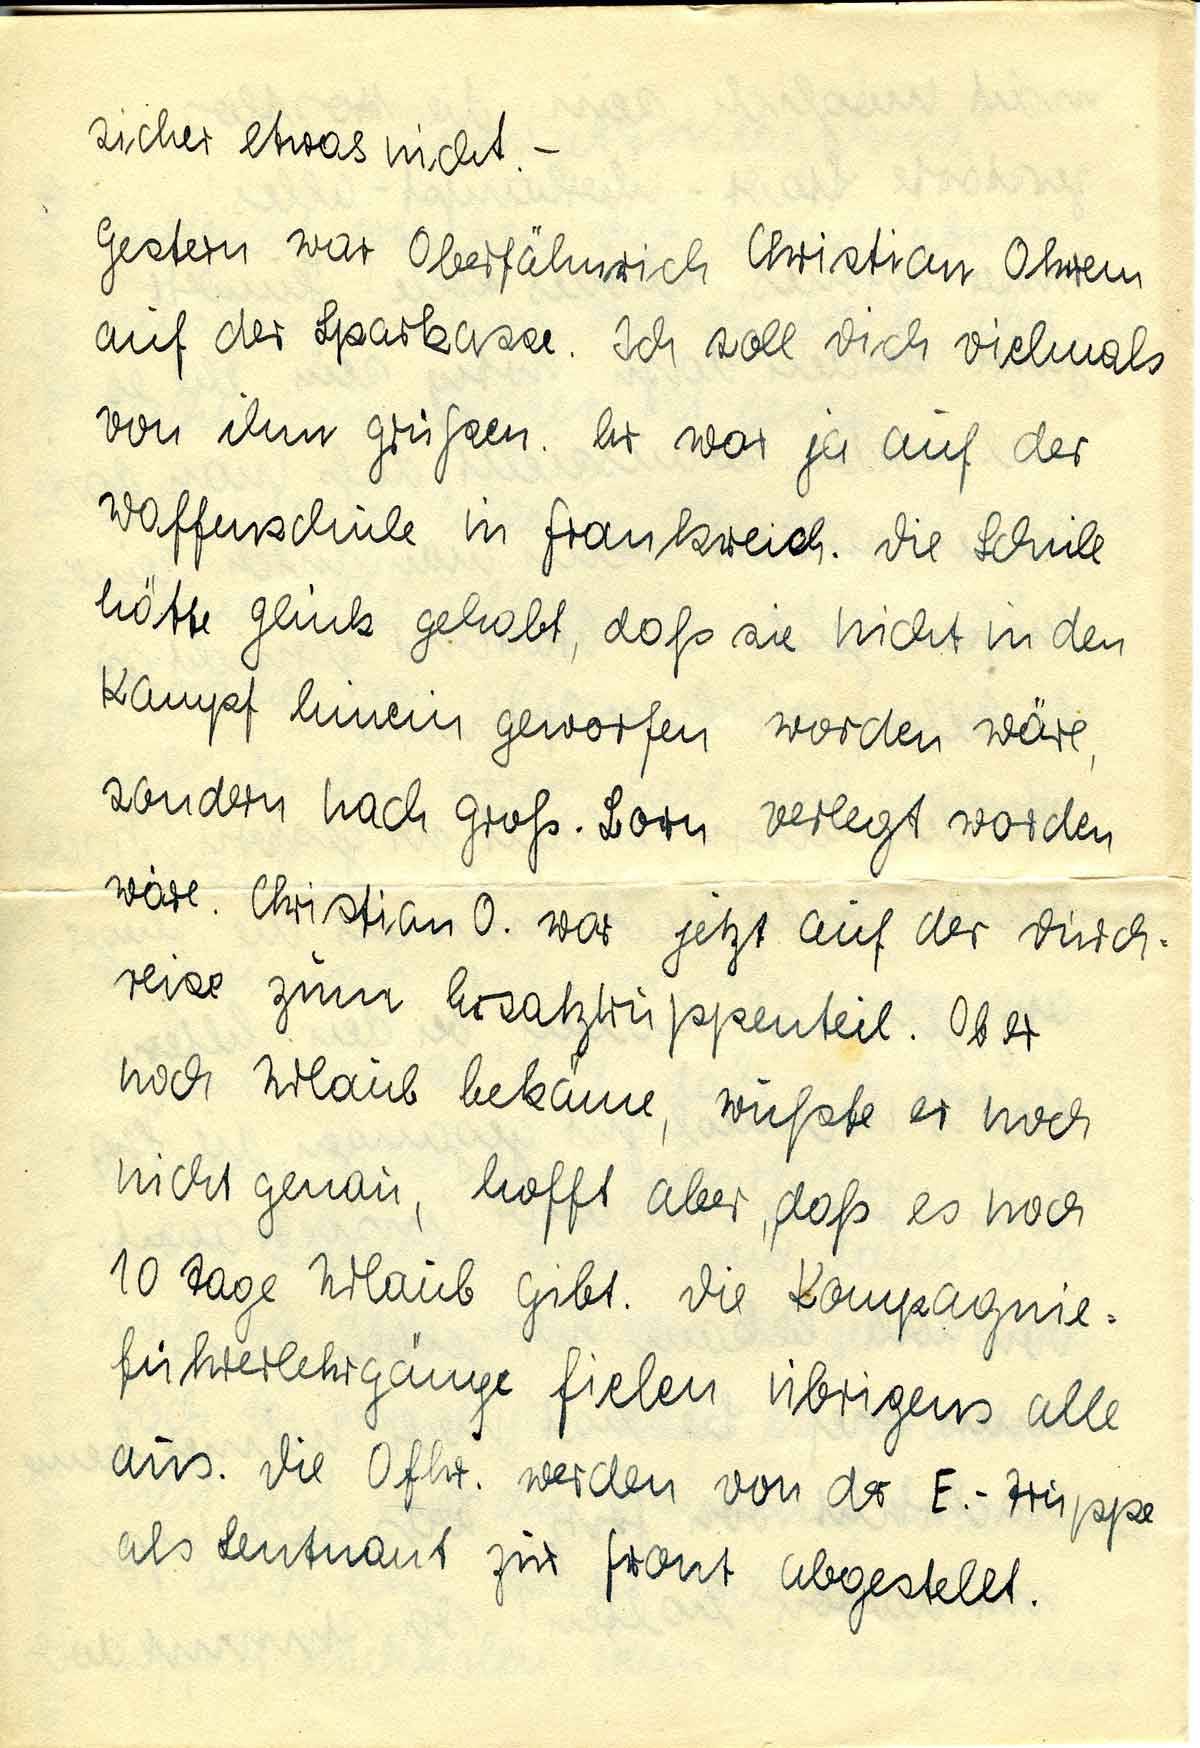 sicher etwas nicht. –
Gestern war Oberfähnrich Christian Ohrem
auf der Sparkasse. Ich soll dich vielmals
von ihm grüßen. Er war ja auf der
Waffenschule in Frankreich. Die Schule
hätte Glück gehabt, daß sie nicht in den
Kampf hinein geworfen worden wäre,
sondern nach Groß-Born verlegt worden
wäre. Christian O. war jetzt auf der Durch-
reise zum Ersatztruppenteil. Ob er
noch Urlaub bekäme, wußte er noch
nicht genau, hofft aber, daß es noch
10 Tage Urlaub gibt. Die Kompagnie-
führerlehrgänge fielen übrigens alle
aus. Die Ofhr. werden von der E.-Truppe
als Leutnant zur Front abgestellt.